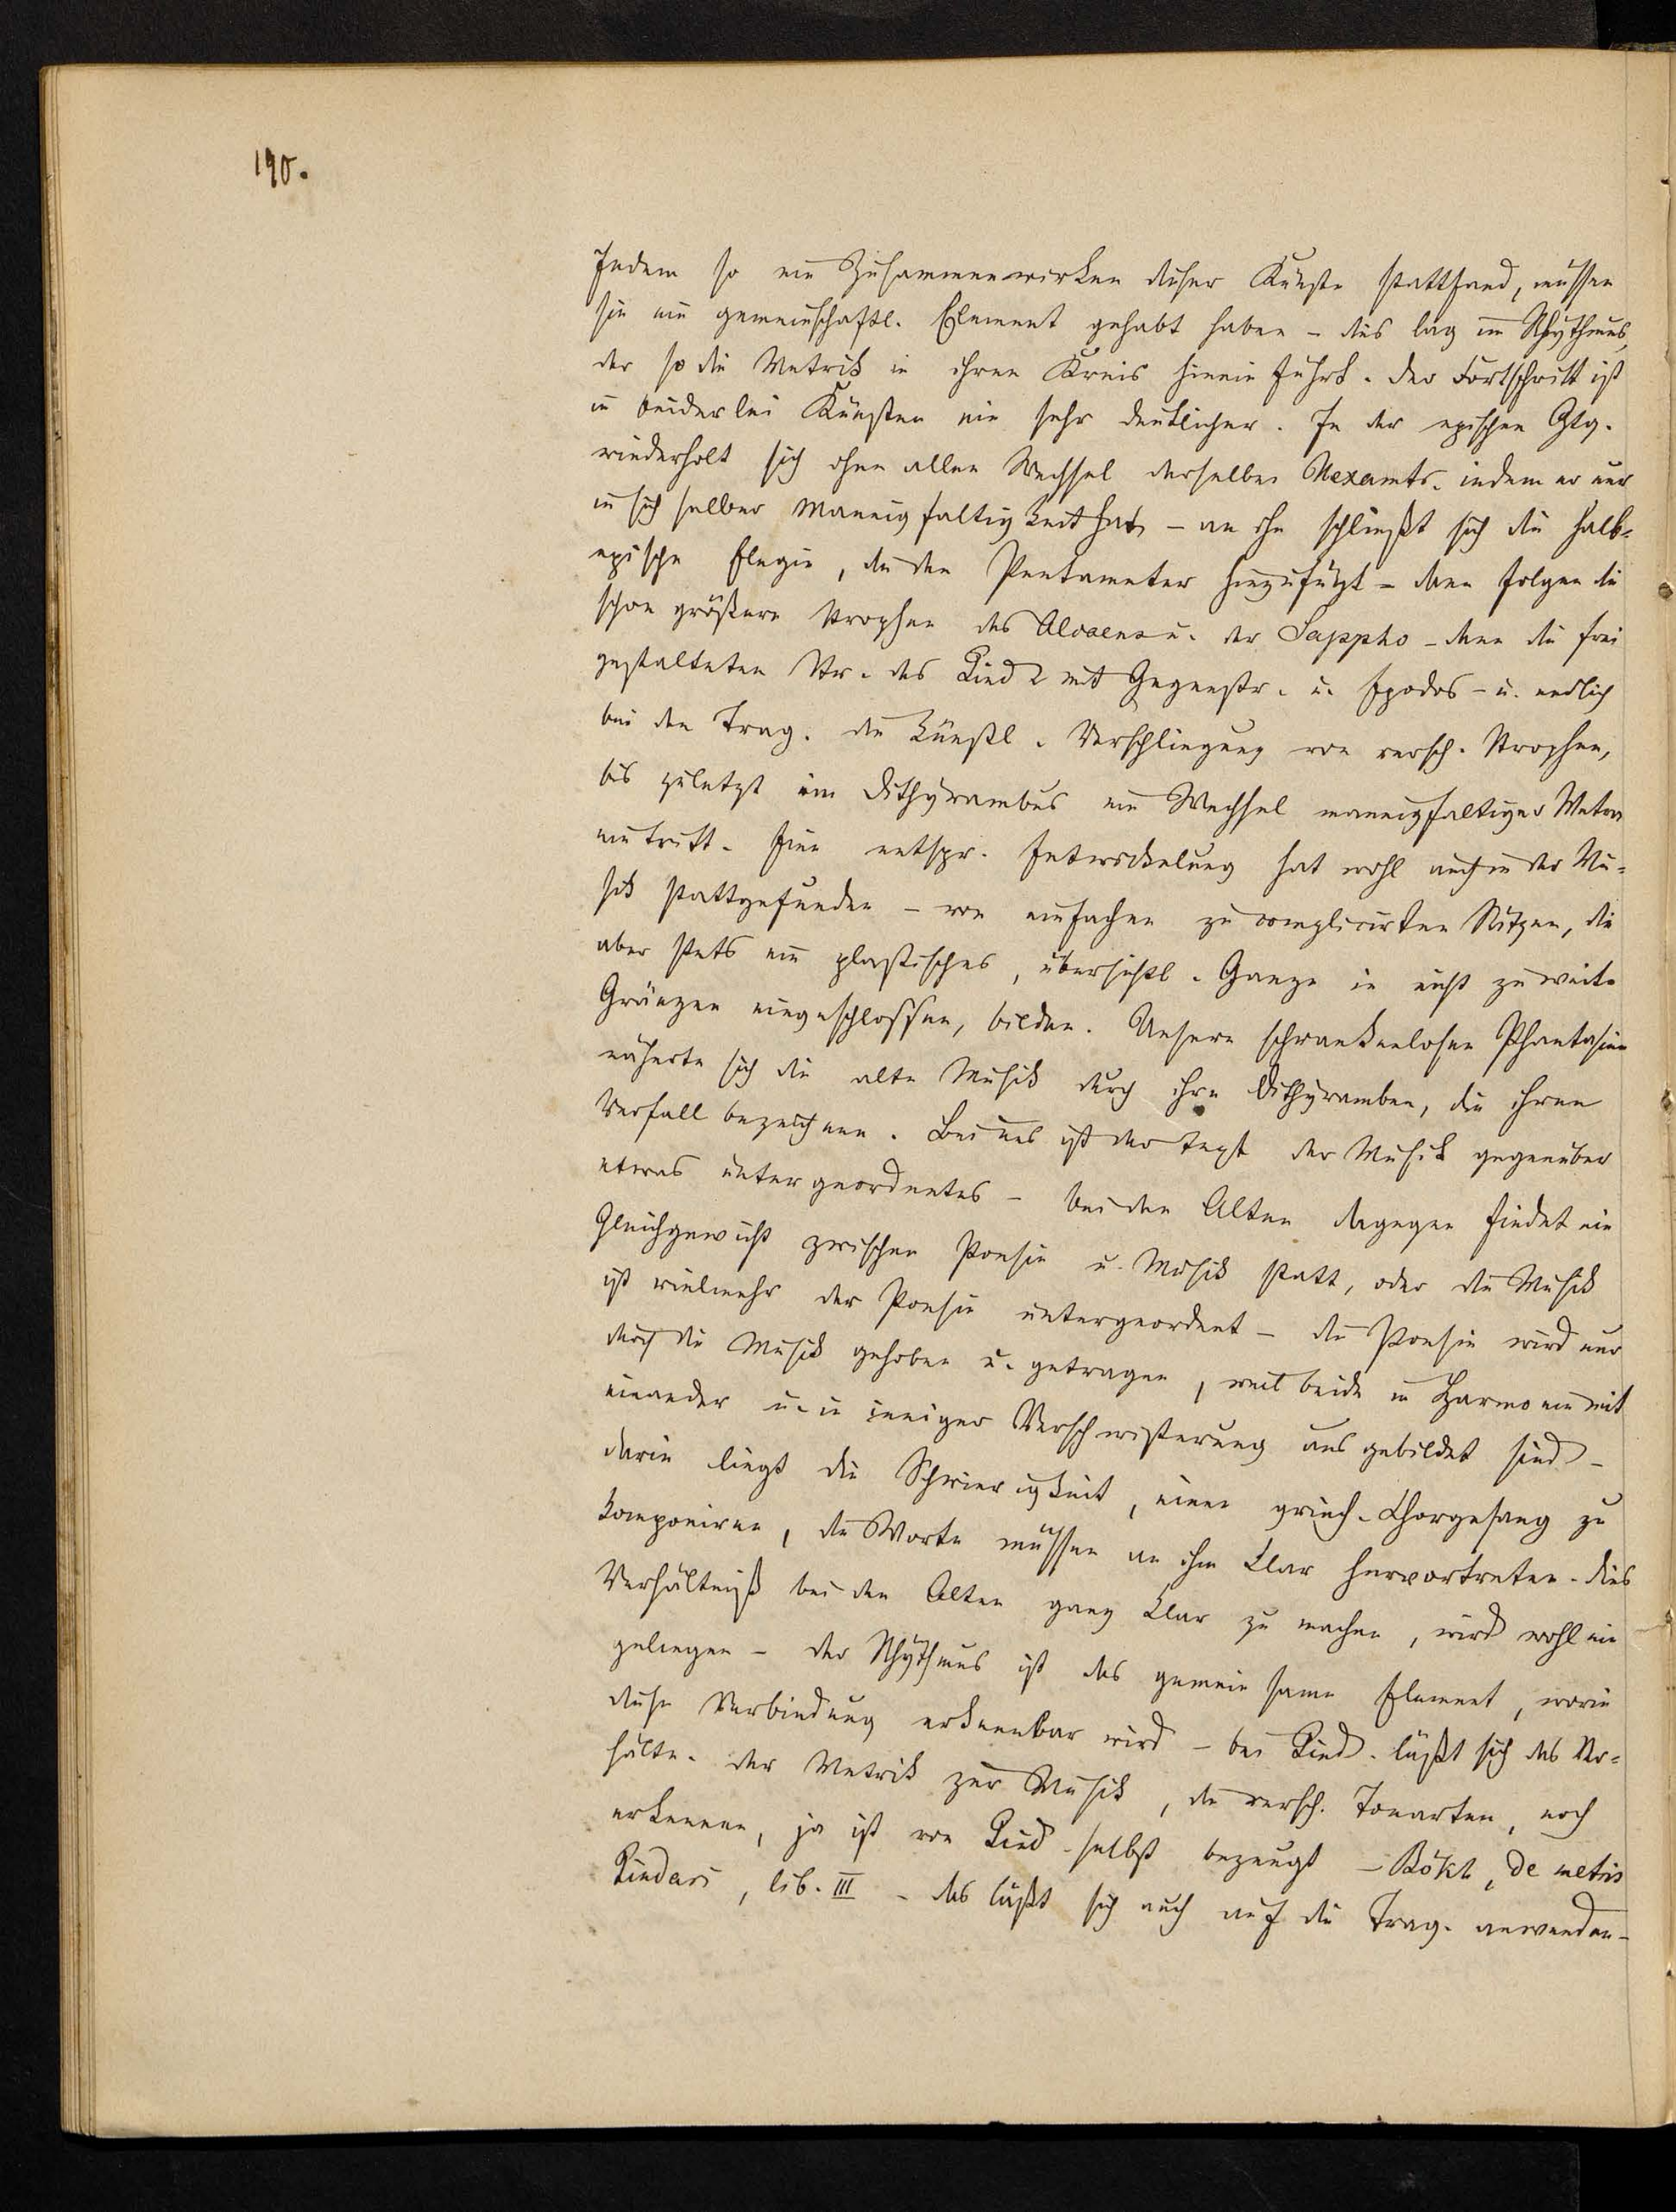 190.
Indem so ein Zusammenwirken dieser Künste stattfand, müssen
sie ein gemeinschaftl. Element gehabt haben – dies lag im Rhythmus,
der so die Metrik in ihren Kreis hinein führt. Der Fortschritt ist
in beiderlei Künsten ein sehr deutlicher. In der epischen Gtg.
wiederholt sich ohne allen Wechsel derselbe Hexamtr. indem er nur
in sich selber Mannigfaltigkeit hat – an ihn schließt sich die halb-
epische Elegie, die den Pentameter hinzufügt – dann folgen die
schon größern Strophen des Alcaeus u. der Sappho – dann die frei
gestalteten Str. des Pind. mit Gegenstr. u. Epodos – u. endlich
bei den Trag. die künstl. Verschlingung von versch. Strophen,
bis zuletzt im Dithyrambus ein Wechsel mannigfaltiger Metra
eintritt. Eine entspr. Entwickelung hat wohl auch in der Mu-
sik stattgefunden – von einfachen zu complicirten Sätzen, die
aber stets ein plastisches, übersichtl. Ganze in nicht zu weite
Gränzen eingeschlossen, bilden. Unsern schrankenlosen Phantasien
näherte sich die alte Musik durch ihre Dithyramben, die ihren
Verfall bezeichnen. Bei uns ist der Text der Musik gegenüber
etwas untergeordnetes – bei den Alten dagegen findet ein
Gleichgewicht zwischen Poesie u. Musik statt, oder die Musik
ist vielmehr der Poesie untergeordnet – die Poesie wird nur
durch die Musik gehoben u. getragen, weil beide in Harmonie mit
einander u. in inniger Verschwisterung ausgebildet sind –
darin liegt die Schwierigkeit, einen griech. Chorgesang zu
komponiren, die Worte müssen an ihm klar hervortreten. Dies
Verhältniß bei den Alten ganz klar zu machen, wird wohl nie
gelingen – der Rhythmus ist das gemeinsame Element, worin
diese Verbindung erkennbar wird – bei Pind. läßt sich das Ver-
hältn. der Metrik zur Musik, die versch. Tonarten, noch
erkennen, ja ist von Pind. selbst bezeugt – Bökh, de metris
Pindari, lib. III – das läßt sich auch auf die Trag. anwenden –